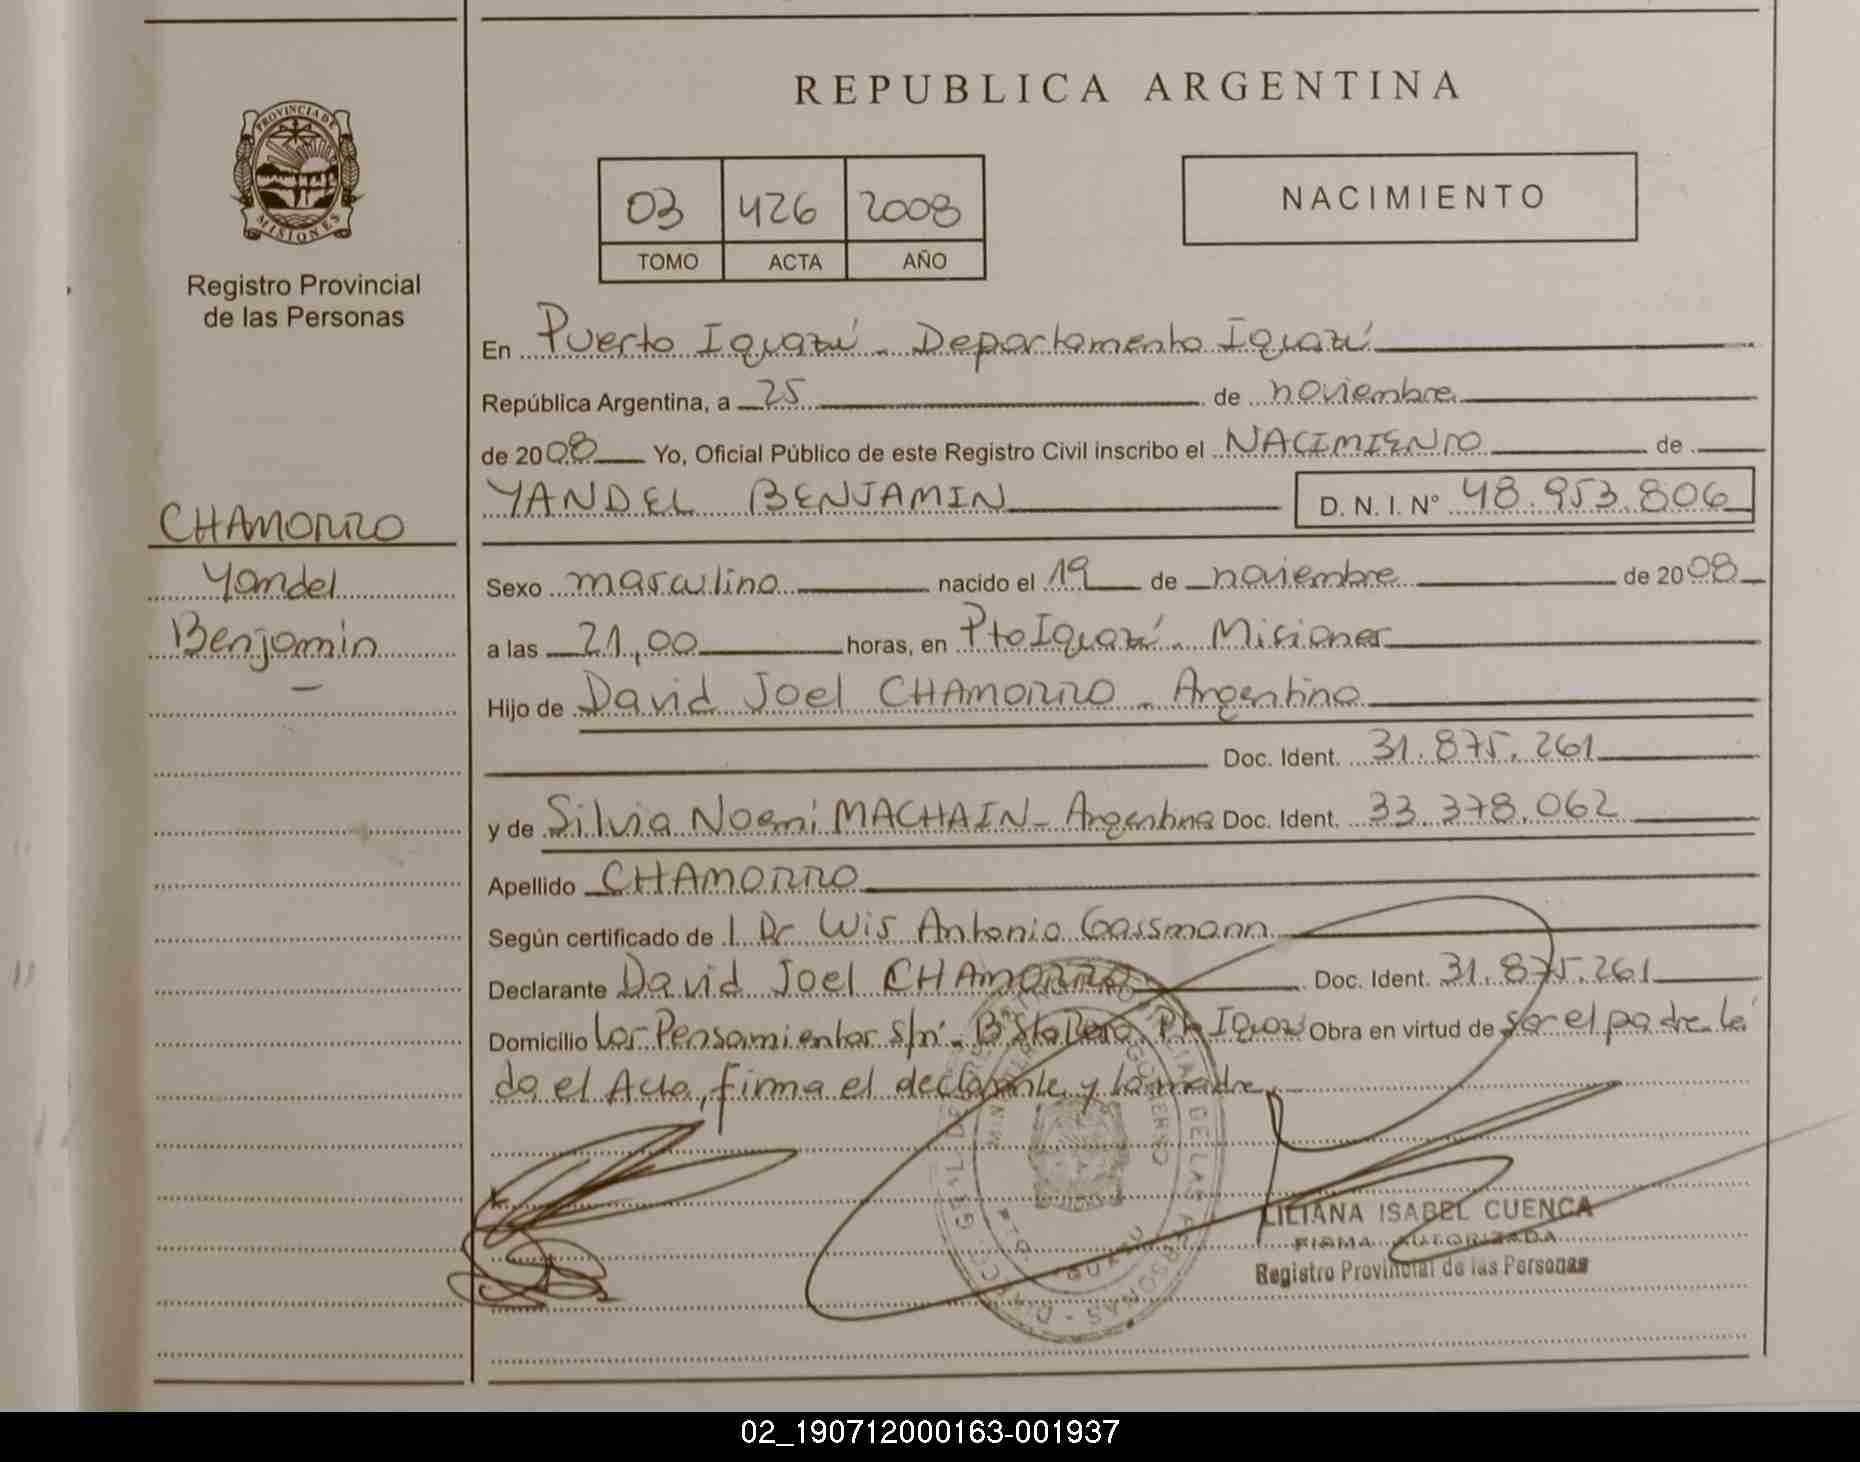 REPUBLICA ARGENTINA
PROVINCIA DE
MISIONES
Registro Provincial
de las Personas
03 426 2008
TOMO ACTA AÑO
NACIMIENTO
En Puerto Iguazú - Departamento Iguazú
República Argentina, a 25 de noviembre
de 2008 Yo, Oficial Público de este Registro Civil inscribo el NACIMIENTO de
YANDEL BENJAMIN D. N. I. N° 48.953.806
CHAMORRO
Yandel
Benjamin
Sexo masculino nacido el 19 de noviembre de 2008
a las 21,00 horas, en Pto Iguazú - Misiones
Hijo de David Joel CHAMORRO - Argentino
Doc. Ident. 31.875.261
y de Silvia Noemi MACHAIN - Argentina Doc. Ident. 33.378.062
Apellido CHAMORRO
Según certificado de l Dr Luis Antonio Gassmann
Declarante David Joel CHAMORRO Doc. Ident. 31.875.261
Domicilio Los Pensamientos s/n - B° Sta Rosa Pto Iguazú Obra en virtud de ser el padre leí
da el Acta, firma el declarante y la madre
LILIANA ISABEL CUENCA
FIRMA AUTORIZADA
Registro Provincial de las Personas
02_190712000163-001937